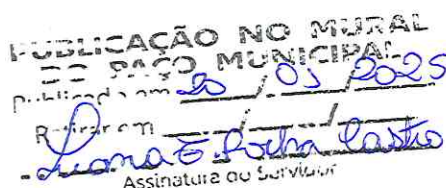 PUBLICAÇÃO NO MURAL
DO PAÇO MUNICIPAL
Publicado em 20 / 05 / 2025
Retirar em ___/___/___
Assinatura do Servidor